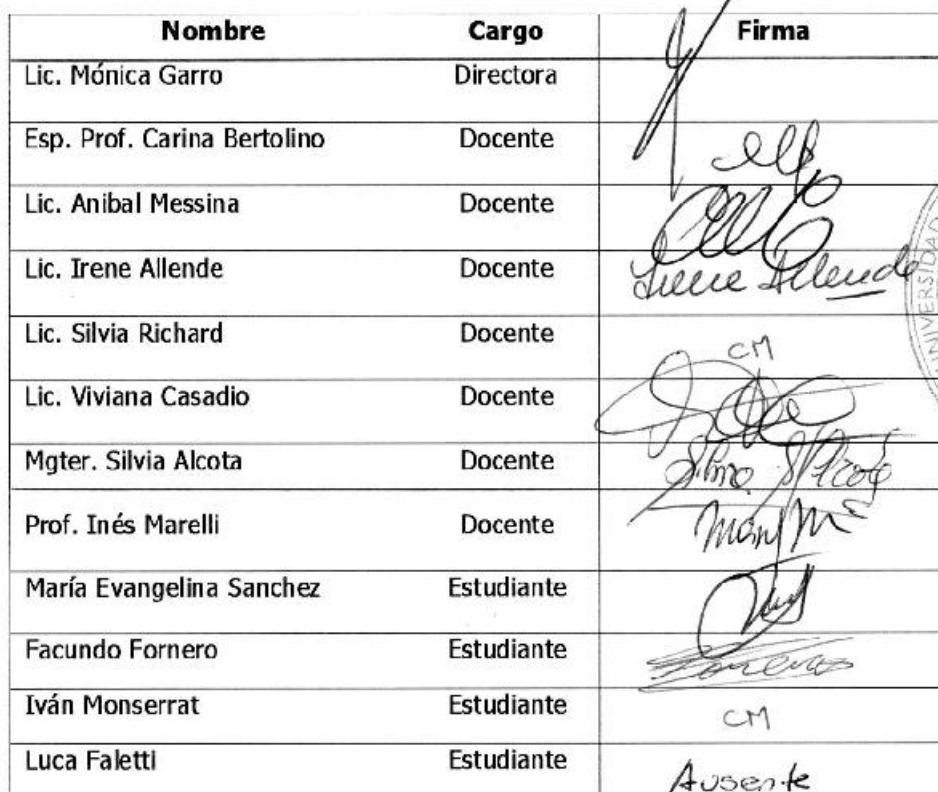 Nombre Cargo Firma
Lic. Mónica Garro Directora
Esp. Prof. Carina Bertolino Docente
Lic. Anibal Messina Docente
Lic. Irene Allende Docente Irene Allende
Lic. Silvia Richard Docente CM
Lic. Viviana Casadio Docente
Mgter. Silvia Alcota Docente
Prof. Inés Marelli Docente
María Evangelina Sanchez Estudiante
Facundo Fornero Estudiante
Iván Monserrat Estudiante CM
Luca Faletti Estudiante Ausente
UNIVERSIDAD